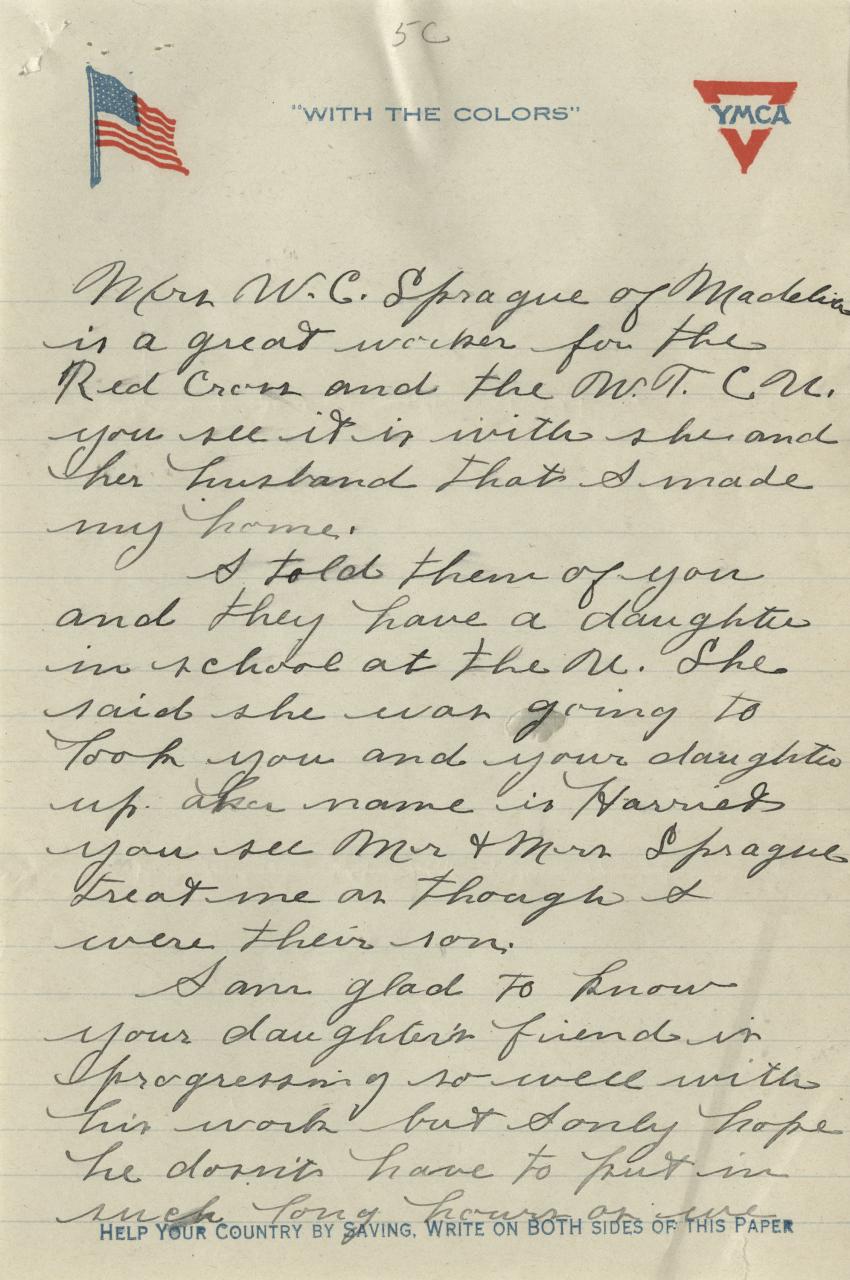 5C
"WITH THE COLORS"
YMCA
Mrs W.C. Sprague of Madelia
is a great worker for the
Red Cross and the W.T.C.U.
you see it is with she and
her husband that I made
my home.
I told them of you
and they have a daughter
in school at the U. She
said she was going to
look you and your daughter
up. name is Harriet
you see Mr & Mrs Sprague
treat me as though I
were their son.
I am glad to know
your daughter's friend is
progressing so well with
his work but I only hope
he dosn't have to put in
such long hours as we
HELP YOUR COUNTRY BY SAVING, WRITE ON BOTH SIDES OF THIS PAPER